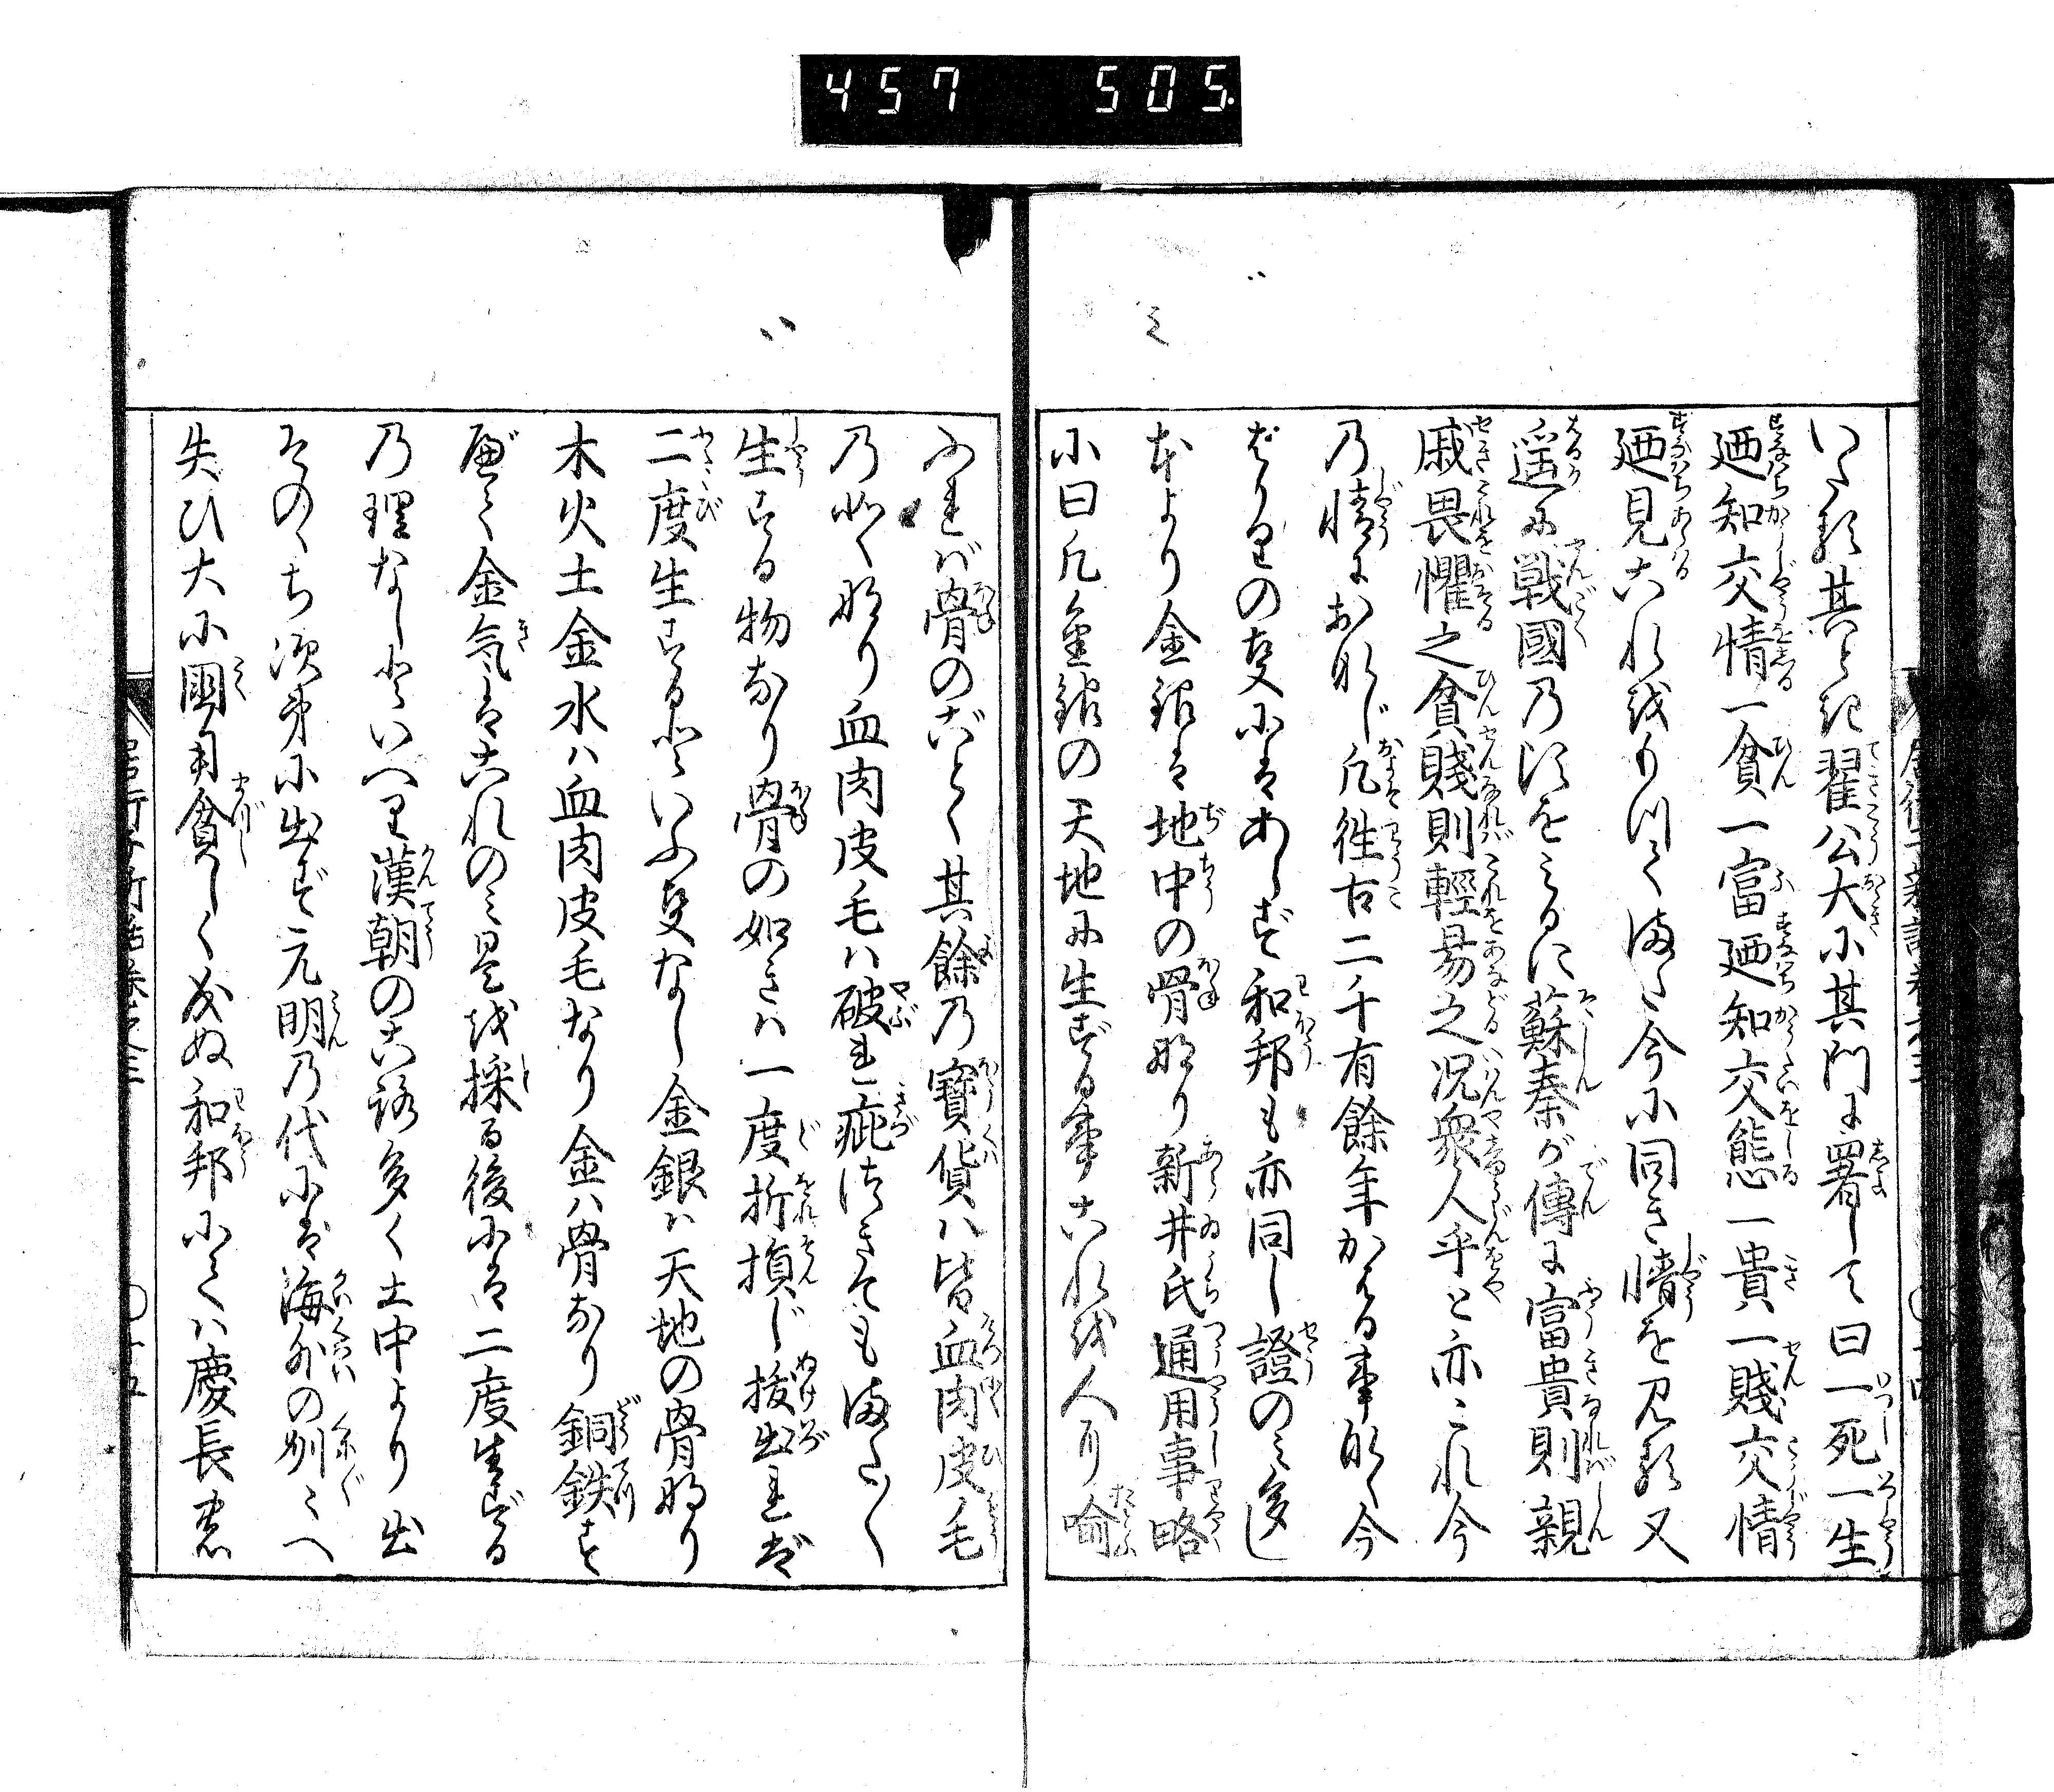 457 505
いたる其とき翟公大に其門に署して曰一死一生
廼知交情一貧一富廼知交態一貴一賤交情
廼見これをもつてまた今に同き情を見る又
遥に戦國乃頃をみるに蘇秦が傳に富貴則親
戚畏懼之貧賤則輕易之況衆人乎と亦これ今
乃情におなじ凡徃古二千有餘年かはる事なく今
ばかりの事にはあらず和邦も亦同し證のみ多し
本より金銀は地中の骨なり新井氏通用事略
に曰凡金銀の天地に生ずる事これを人り喩
ふれば骨のごとく其餘乃寶貨は皆血肉皮毛
乃如くなり血肉皮毛ハ破れ疵つきても又また
生ずる物なり骨の如きハ一度折損じ抜出れば
二度生ずるといふ事なし金銀ハ天地の骨なり
木火土金水ハ血肉皮毛なり金ハ骨なり銅鉄す
べて金気はこれのみ是を採る後には二度生ずる
乃理なしといへり漢朝の
多く土中より出
そのゝち次第に出ず元明乃代には海外の州〻へ
失ひ大に國用貧しく成ぬ和邦にてハ慶長